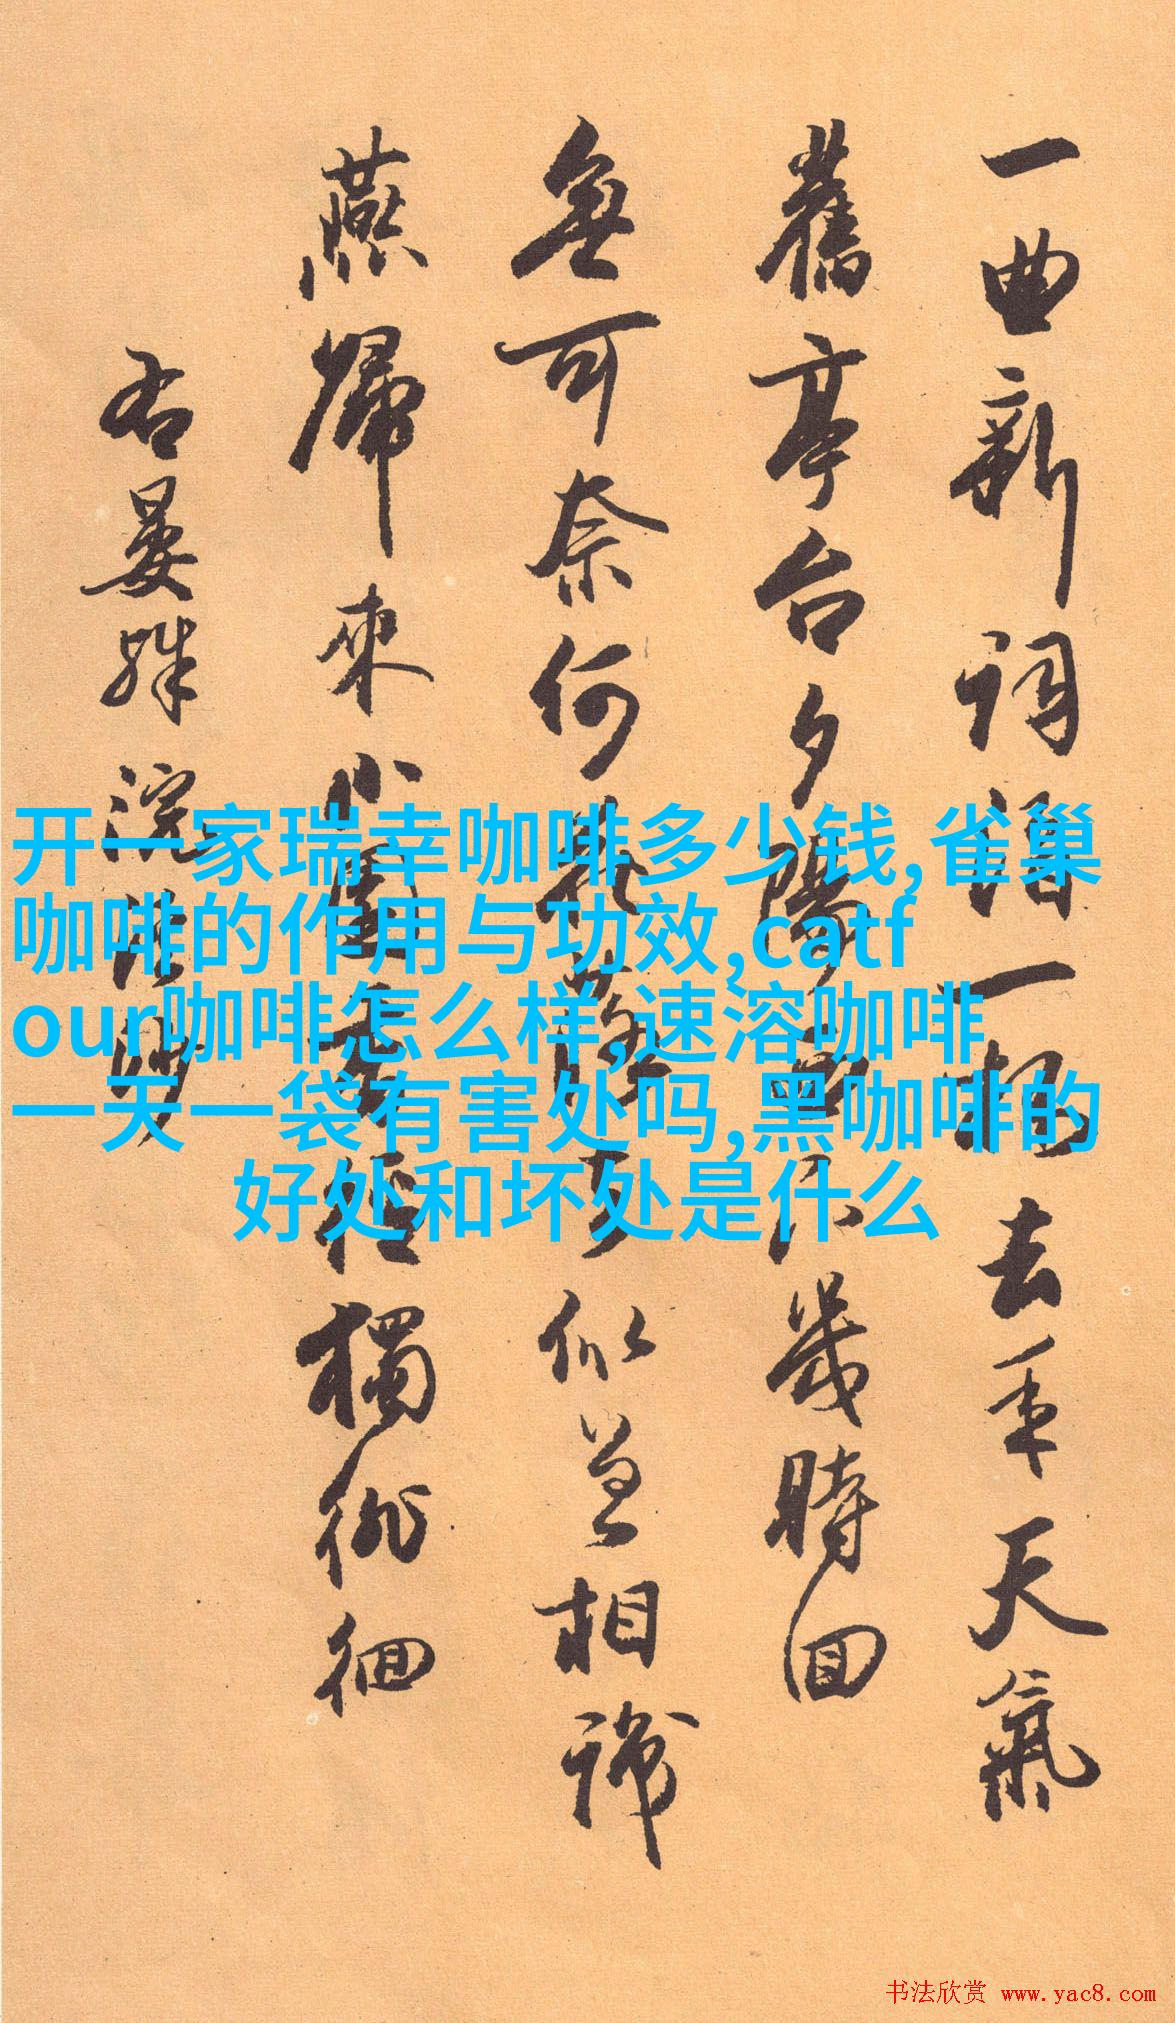 一曲新詞酒一杯去年天氣
舊亭台夕陽西下幾時回
無可奈何花落去似曾相識
燕歸來小園香徑獨徘徊
右晏殊浣溪沙
开一家瑞幸咖啡多少钱,雀巢
咖啡的作用与功效,catf
our咖啡怎么样,速溶咖啡
一天一袋有害处吗,黑咖啡的
好处和坏处是什么
书法欣赏 www.yac8.com